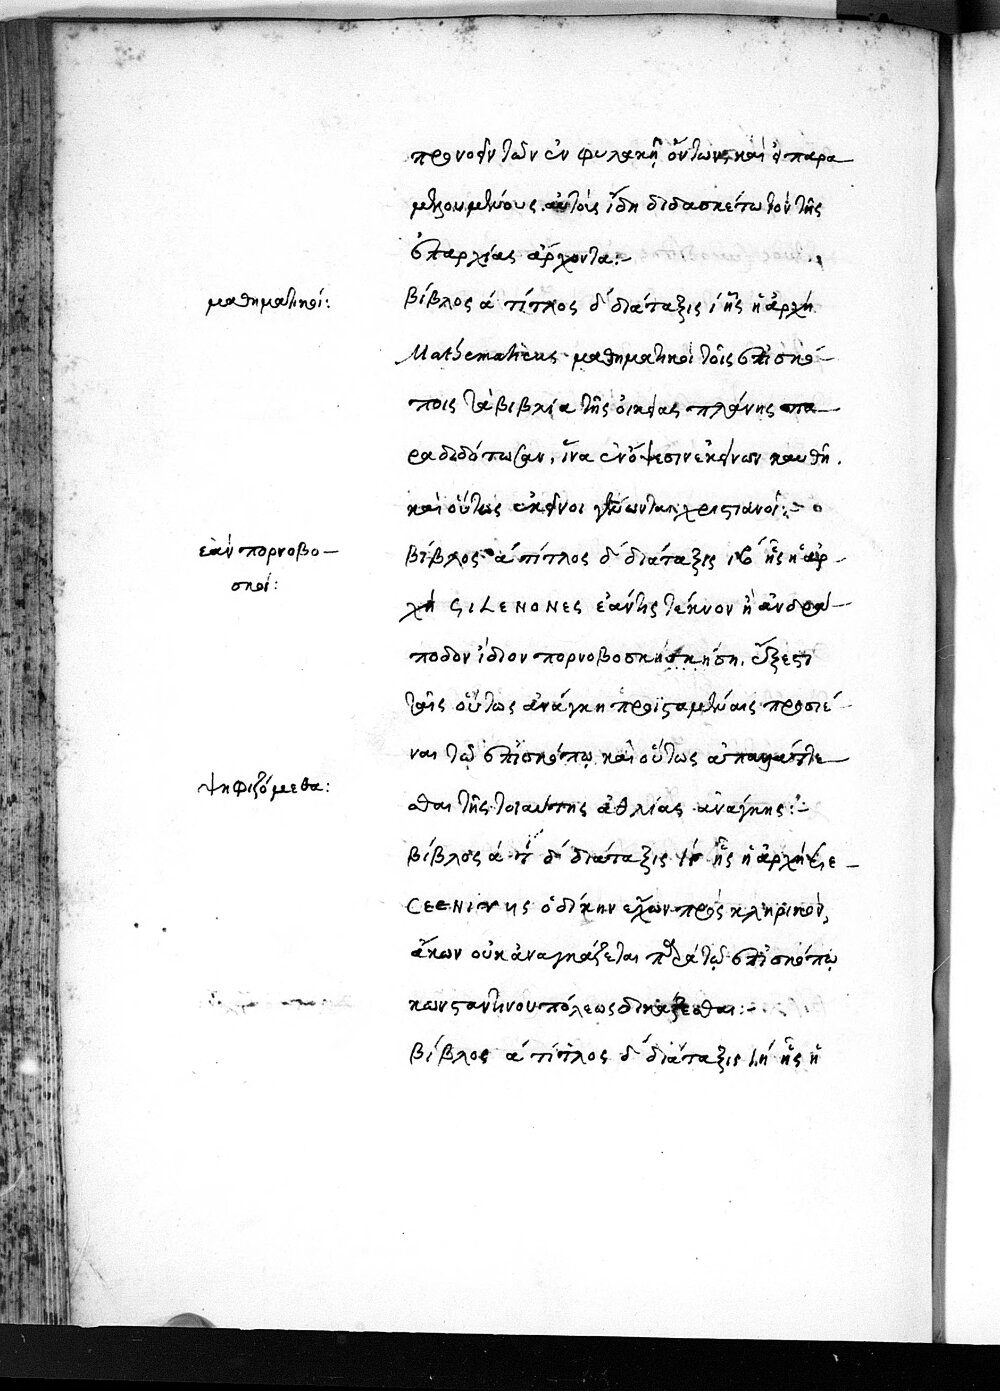 προνοεῖν τῶν ἐν φυλακῇ ὄντων, καὶ ὁ παρα
μελουμένους αὐτοὺς ἴδῃ διδασκέτω τὸν τῆς
ἐπαρχίας ἄρχοντα:-
μαθηματικοί:
βίβλος ά τίτλος δ´ διάταξις ί ἧς ἡ ἀρχή
Mathematicus μαθηματικοὶ τοῖς ἐπισκό-
ποις τὰ βιβλία τῆς οἰκείας πλάνης πα-
ραδιδότωσαν, ἵνα ἐν ὄψεσιν ἐκείνων καυθῇ.
καὶ οὕτως ἐκεῖνοι γένωνται χριστιανοί:-
ἐὰν πορνοβο-
σκοί:
βίβλος ά τίτλος δ´ διάταξις ιβ´ ἧς ἡ ἀρ-
χή SiLENONES ἐάν τις τέκνον ἢ ἀνδρά-
ποδον ἴδιον πορνοβοσκήσῃ, ἔξεστι
ταῖς οὕτως ἀνάγκῃ προϊσταμέναις προσιέ-
ναι τῷ ἐπισκόπῳ καὶ οὕτως ἀπαλάττε-
σθαι τῆς τοιαύτης ἀθλίας ἀνάγκης:-
ψηφιζόμεθα:
βίβλος ά τί δ´ διάταξις ιγ ἧς ἡ ἀρχή
ὁ δίκην ἔχων πρὸς κληρικὸν,
ἄκων οὐκ ἀναγκάζεται παρὰ τῷ ἐπισκόπῳ
κωνσταντινουπόλεως δικάζεσθαι:-
βίβλος ά τίτλος δ´ διάταξις ιή ἧς ἡ